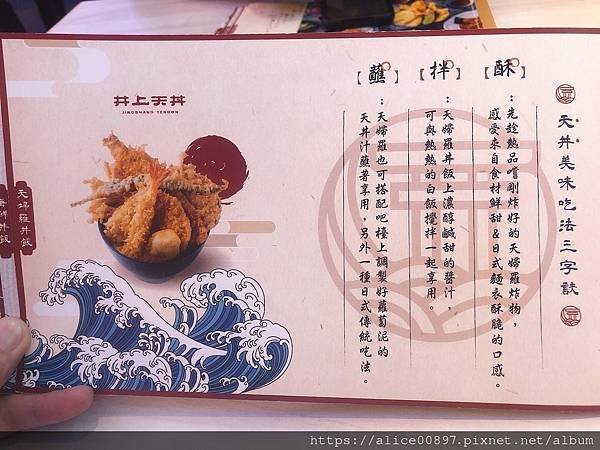 天丼美味吃法三字訣
【酥】
：先趁熱品嚐剛炸好的天婦羅炸物，
感受來自食材鮮甜&日式麵衣酥脆的口感。
【拌】
：天婦羅丼飯上濃醇鹹甜的醬汁，
可與熱熱的白飯攪拌一起享用。
【蘸】
：天婦羅也可搭配吧檯上調製好蘿蔔泥的
天丼汁蘸著享用，另外一種日式傳統吃法。
井上天丼
JINGSHANG TENDON
天婦羅丼飯
海鮮丼飯
https://alice00897.pixnet.net/album